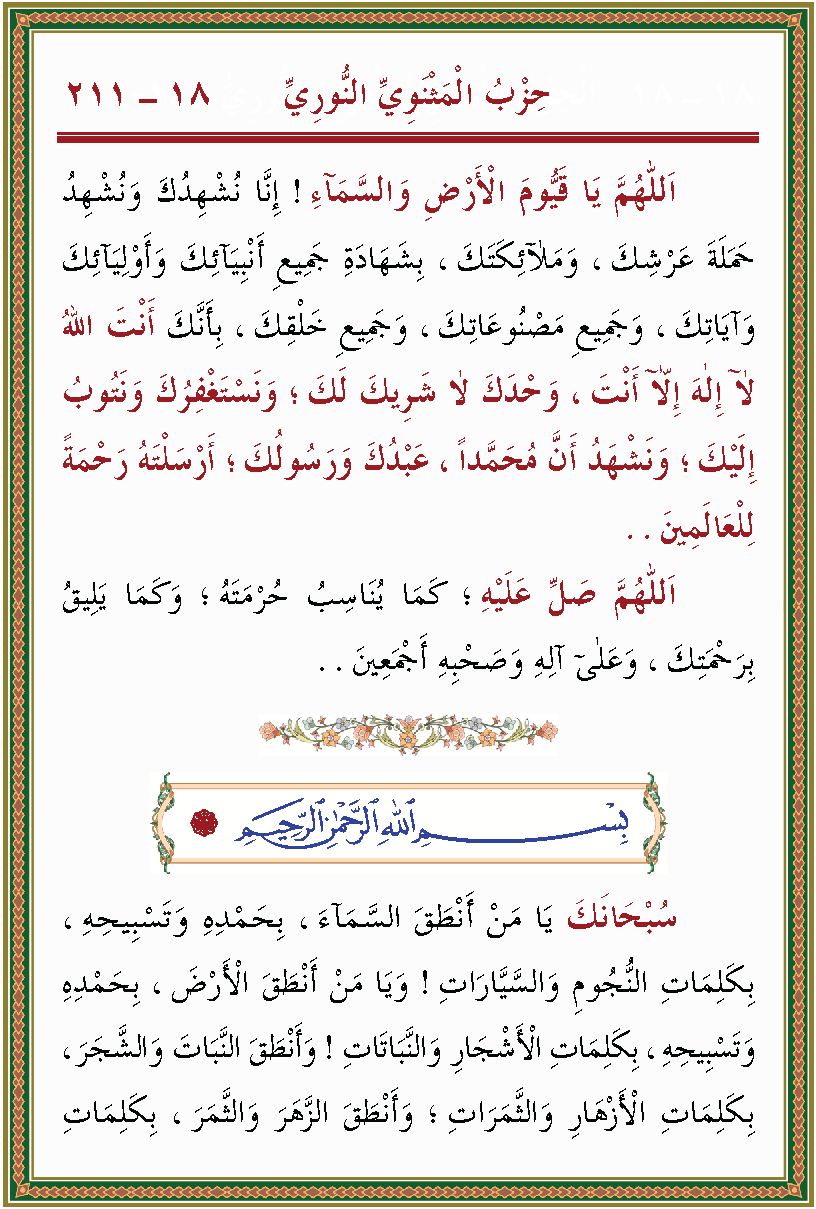 حِزْبُ الْمَثْنَوِيِّ النُّورِيِّ ١٨ ـ ٢١١
اَللّٰهُمَّ يَا قَيُّومَ الْأَرْضِ وَالسَّمَآءِ ! إِنَّا نُشْهِدُكَ وَنُشْهِدُ
حَمَلَةَ عَرْشِكَ ، وَمَلٰٓائِكَتَكَ ، بِشَهَادَةِ جَمِيعِ أَنْبِيَآئِكَ وَأَوْلِيَآئِكَ
وَآيَاتِكَ ، وَجَمِيعِ مَصْنُوعَاتِكَ ، وَجَمِيعِ خَلْقِكَ ، بِأَنَّكَ أَنْتَ اللهُ
لٰٓا إِلٰهَ إِلَّآ أَنْتَ ، وَحْدَكَ لٰا شَرِيكَ لَكَ ؛ وَنَسْتَغْفِرُكَ وَنَتُوبُ
إِلَيْكَ ؛ وَنَشْهَدُ أَنَّ مُحَمَّداً ، عَبْدُكَ وَرَسُولُكَ ؛ أَرْسَلْتَهُ رَحْمَةً
لِلْعَالَمِينَ . .
اَللّٰهُمَّ صَلِّ عَلَيْهِ ؛ كَمَا يُنَاسِبُ حُرْمَتَهُ ؛ وَكَمَا يَلِيقُ
بِرَحْمَتِكَ ، وَعَلٰىٓ آلِهِ وَصَحْبِهِ أَجْمَعِينَ . .
بِسْمِ ٱللّٰهِ ٱلرَّحْمٰنِ ٱلرَّحِيمِ
سُبْحَانَكَ يَا مَنْ أَنْطَقَ السَّمَآءَ ، بِحَمْدِهِ وَتَسْبِيحِهِ ،
بِكَلِمَاتِ النُّجُومِ وَالسَّيَّارَاتِ ! وَيَا مَنْ أَنْطَقَ الْأَرْضَ ، بِحَمْدِهِ
وَتَسْبِيحِهِ ، بِكَلِمَاتِ الْأَشْجَارِ وَالنَّبَاتَاتِ ! وَأَنْطَقَ النَّبَاتَ وَالشَّجَرَ ،
بِكَلِمَاتِ الْأَزْهَارِ وَالثَّمَرَاتِ ؛ وَأَنْطَقَ الزَّهَرَ وَالثَّمَرَ ، بِكَلِمَاتِ